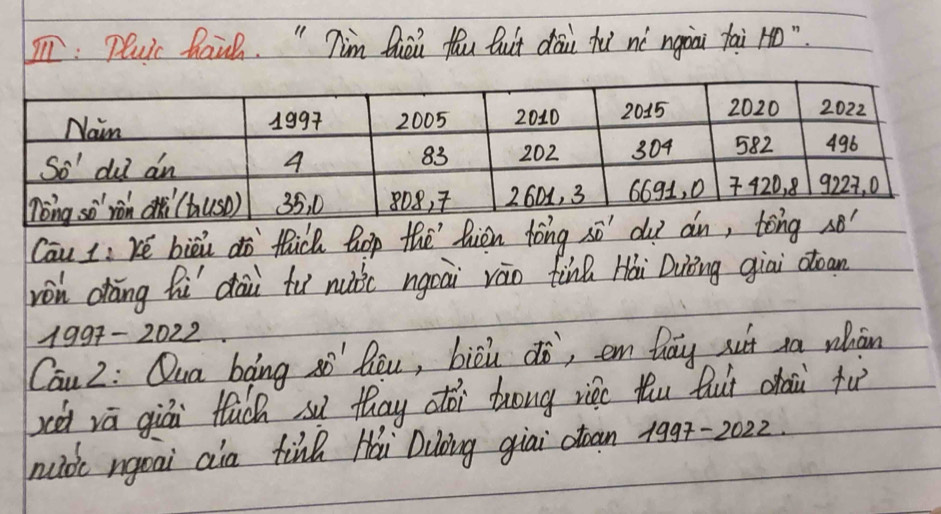 III: Thực hành. "Tìm hiểu thu hút đầu tư nc ngoài tại HD".
Năm 1997 2005 2010 2015 2020 2022
Số dự án 4 83 202 304 582 496
Tổng số vốn đkí (trUSD) 35,0 808,7 2601,3 6691,0 7420,8 9227,0
Câu 1: Vẽ biểu đồ thích hợp thể hiện tổng số dự án, tổng số
vốn đăng kí đầu tư nước ngoài vào tỉnh Hải Dương giai đoạn
1997-2022.
Câu 2: Qua bảng số liệu, biểu đồ, em hãy rút ra nhận
xét và giải thích sự thay đổi trong việc thu hút đầu tư
nước ngoài của tỉnh Hải Dương giai đoạn 1997-2022.